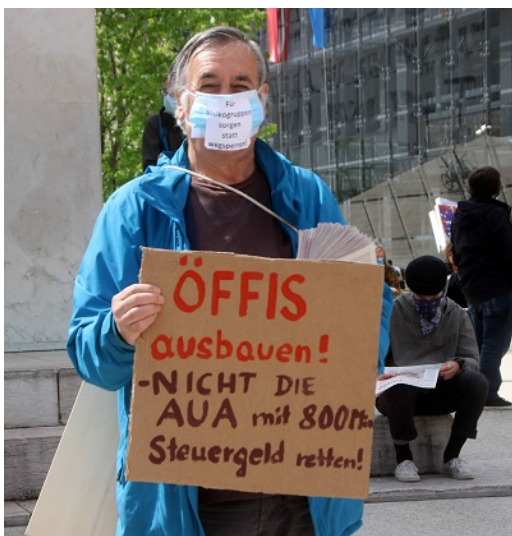 Für
Risikogruppen
sorgen
statt
wegsperren!
ÖFFIS
ausbauen!
-NICHT DIE
AUA mit 800Mio.
Steuergeld retten!